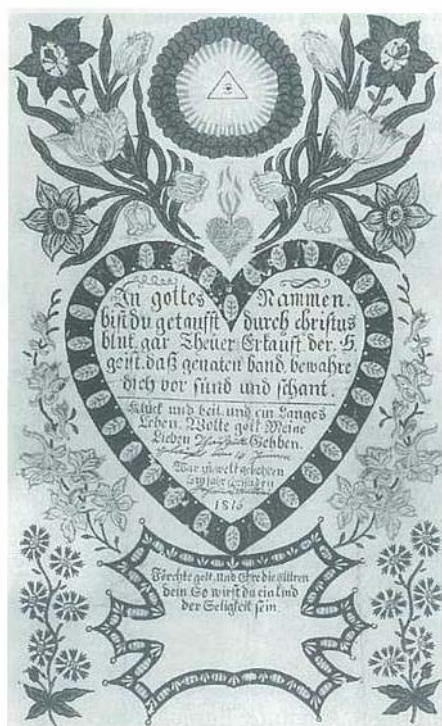 In gottes Nammen.
bist du getaufft durch christus
blut. gar Theuer Erkauft der. H
geist. daß genaten band. bewahre
dich vor sünd und schant.
Klück und heil. und ein Langes
Leben. Wolte gott Meine
Lieben Gebben.
War zu welt gebohren
1816
Förchte gott. Und Ehre die Eltren
dein So wirst du ein kind
der Seligkeit sein.